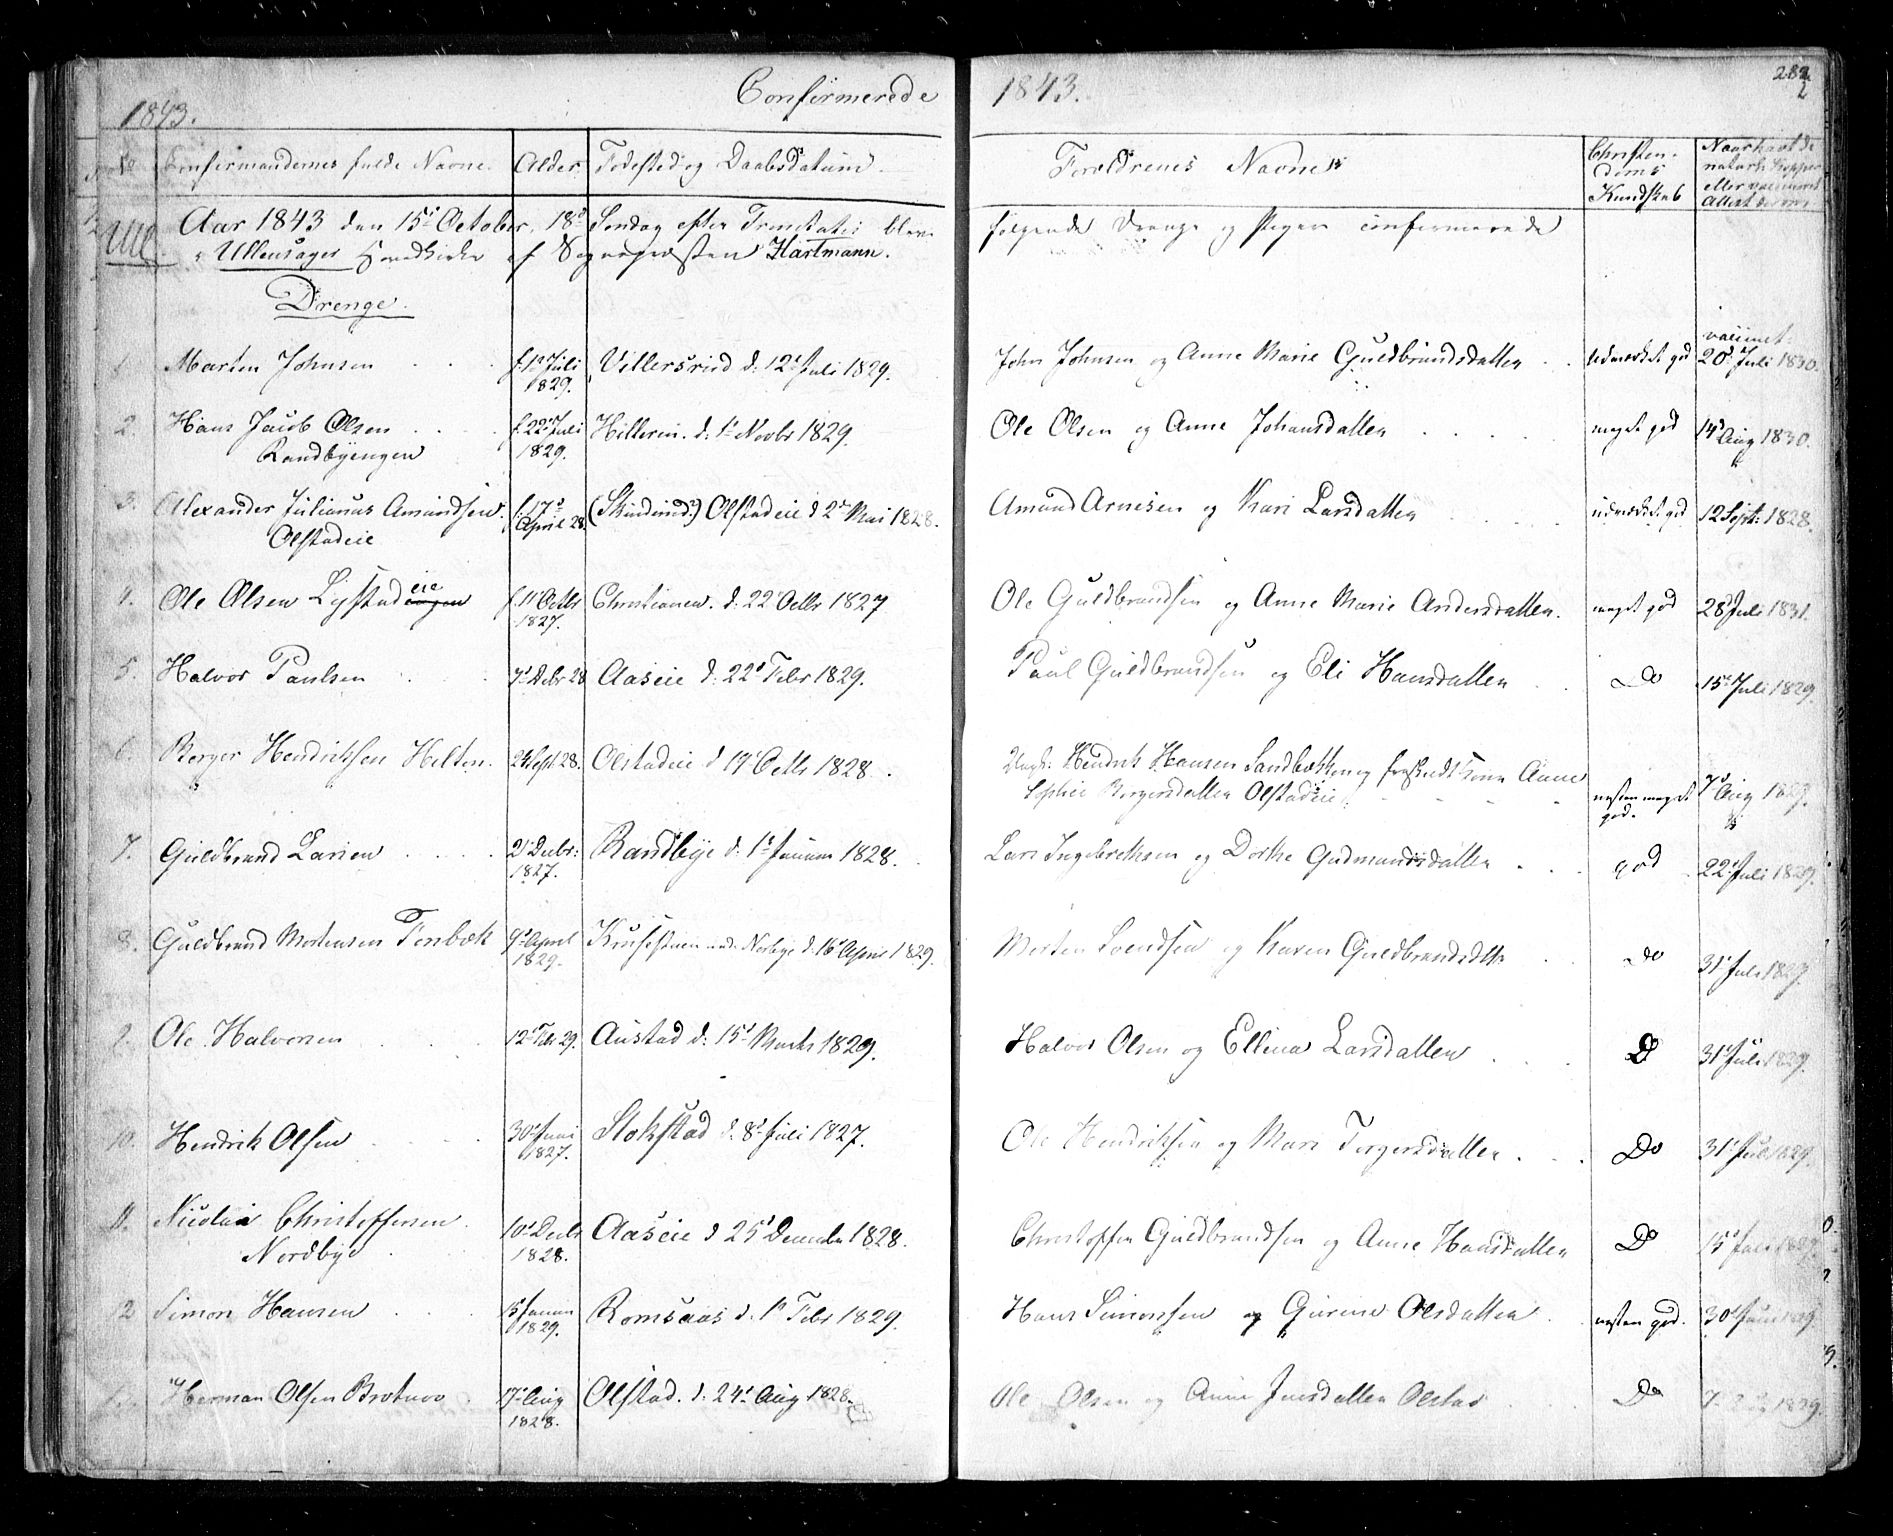 1843.
Confirmerede
Confirmandernes fulde Navne. Alder. Fødested og Daabsdatum.
Ull. Aar 1843 den 15de October, 18de Søndag efter Trinitatis blev
i Ullensager Hovedkirke af Sognepræsten Hartmann.
Drenge.
1 Marten Johnsen f. 12 Juli 1829. d. 12te Juli 1829.
2. Hans Jacob Olsen f. 22 Juli 1829. d. 1te Novbr 1829.
Randbyengen
3. Alexander Julianus Amundsen f. 17de April 28. Olstadeie d 2den Mai 1828.
Olstadeie
4. Ole Olsen Lystadeie f. 11te Octbr 1827. d. 22 Octbr 1827
5. Halvor Paulsen 7de Decbr 28 Aaseie d. 22de Febr 1829.
6. Borger Hendriksen Helten. 24 Sept 28. Olstadeie d 19de Octbr 1828.
7. Guldbrand Larsen 21de Decbr: 1827. Randbye d. 1te Januar 1828.
8. Guldbrand Mortensen Tenbæk 9de April 1829. d. 16de April 1829.
9. Ole Halvorsen 12te Febr 29. Austad d. 15de Marts 1829.
10. Hendrik Olsen 30te Juni 1827. Stokstad d. 8de Juli 1827.
11. Nicolai Christoffersen 10de Decbr 1828. Aaseie d 25de December 1828.
Nordbye
12 Simon Hansen 15 Januar 1829. Romsaas d. 1te Febr 1829.
13. Herman Olsen Brotnov 17de Aug 1828. Olstad. d. 24de Aug 1828.
1843.
282
Forældrenes Navne. Christendoms Kundskab
følgende Drenge og Piger confirmerede
John Johnsen og Anne Marie Guldbrandsdatter udmærket god vaccinet. 20de Juli 1830.
Ole Olsen og Anne Johansdatter meget god 14de Aug 1830.
Amund Arnesen og Kari Larsdatter udmærket god 12 Sept: 1828.
Ole Guldbrandsen og Anne Marie Andersdatter. meget god 28de Juli 1831.
Paul Guldbrandsen og Eli Hansdatter Do 15de Juli 1829.
Ungk: Hendrik Hansen Sandbækken og fraskildt Kone Anne
Sophie Borgersdatter Olstadeie nesten meget god. 7de Aug 1829.
Lars Ingebretsen og Dorthe Gudmundsdatter god 22de Juli 1829.
Morten Svendsen og Karen Guldbrandsdtr Do 31te Juli 1829.
Halvor Olsen og Ellina Larsdatter Do 31te Juli 1829.
Ole Hendriksen og Mari Torgersdatter Do 31te Juli 1829.
Christoffer Guldbrandsen og Anne Hansdatter Do 15de Juli 1829.
Hans Simonsen og Gurine Olsdatter nesten god. 30te Juni 1829.
Ole Olsen og Anne Jensdatter Olstad Do 7de Aug 1829.